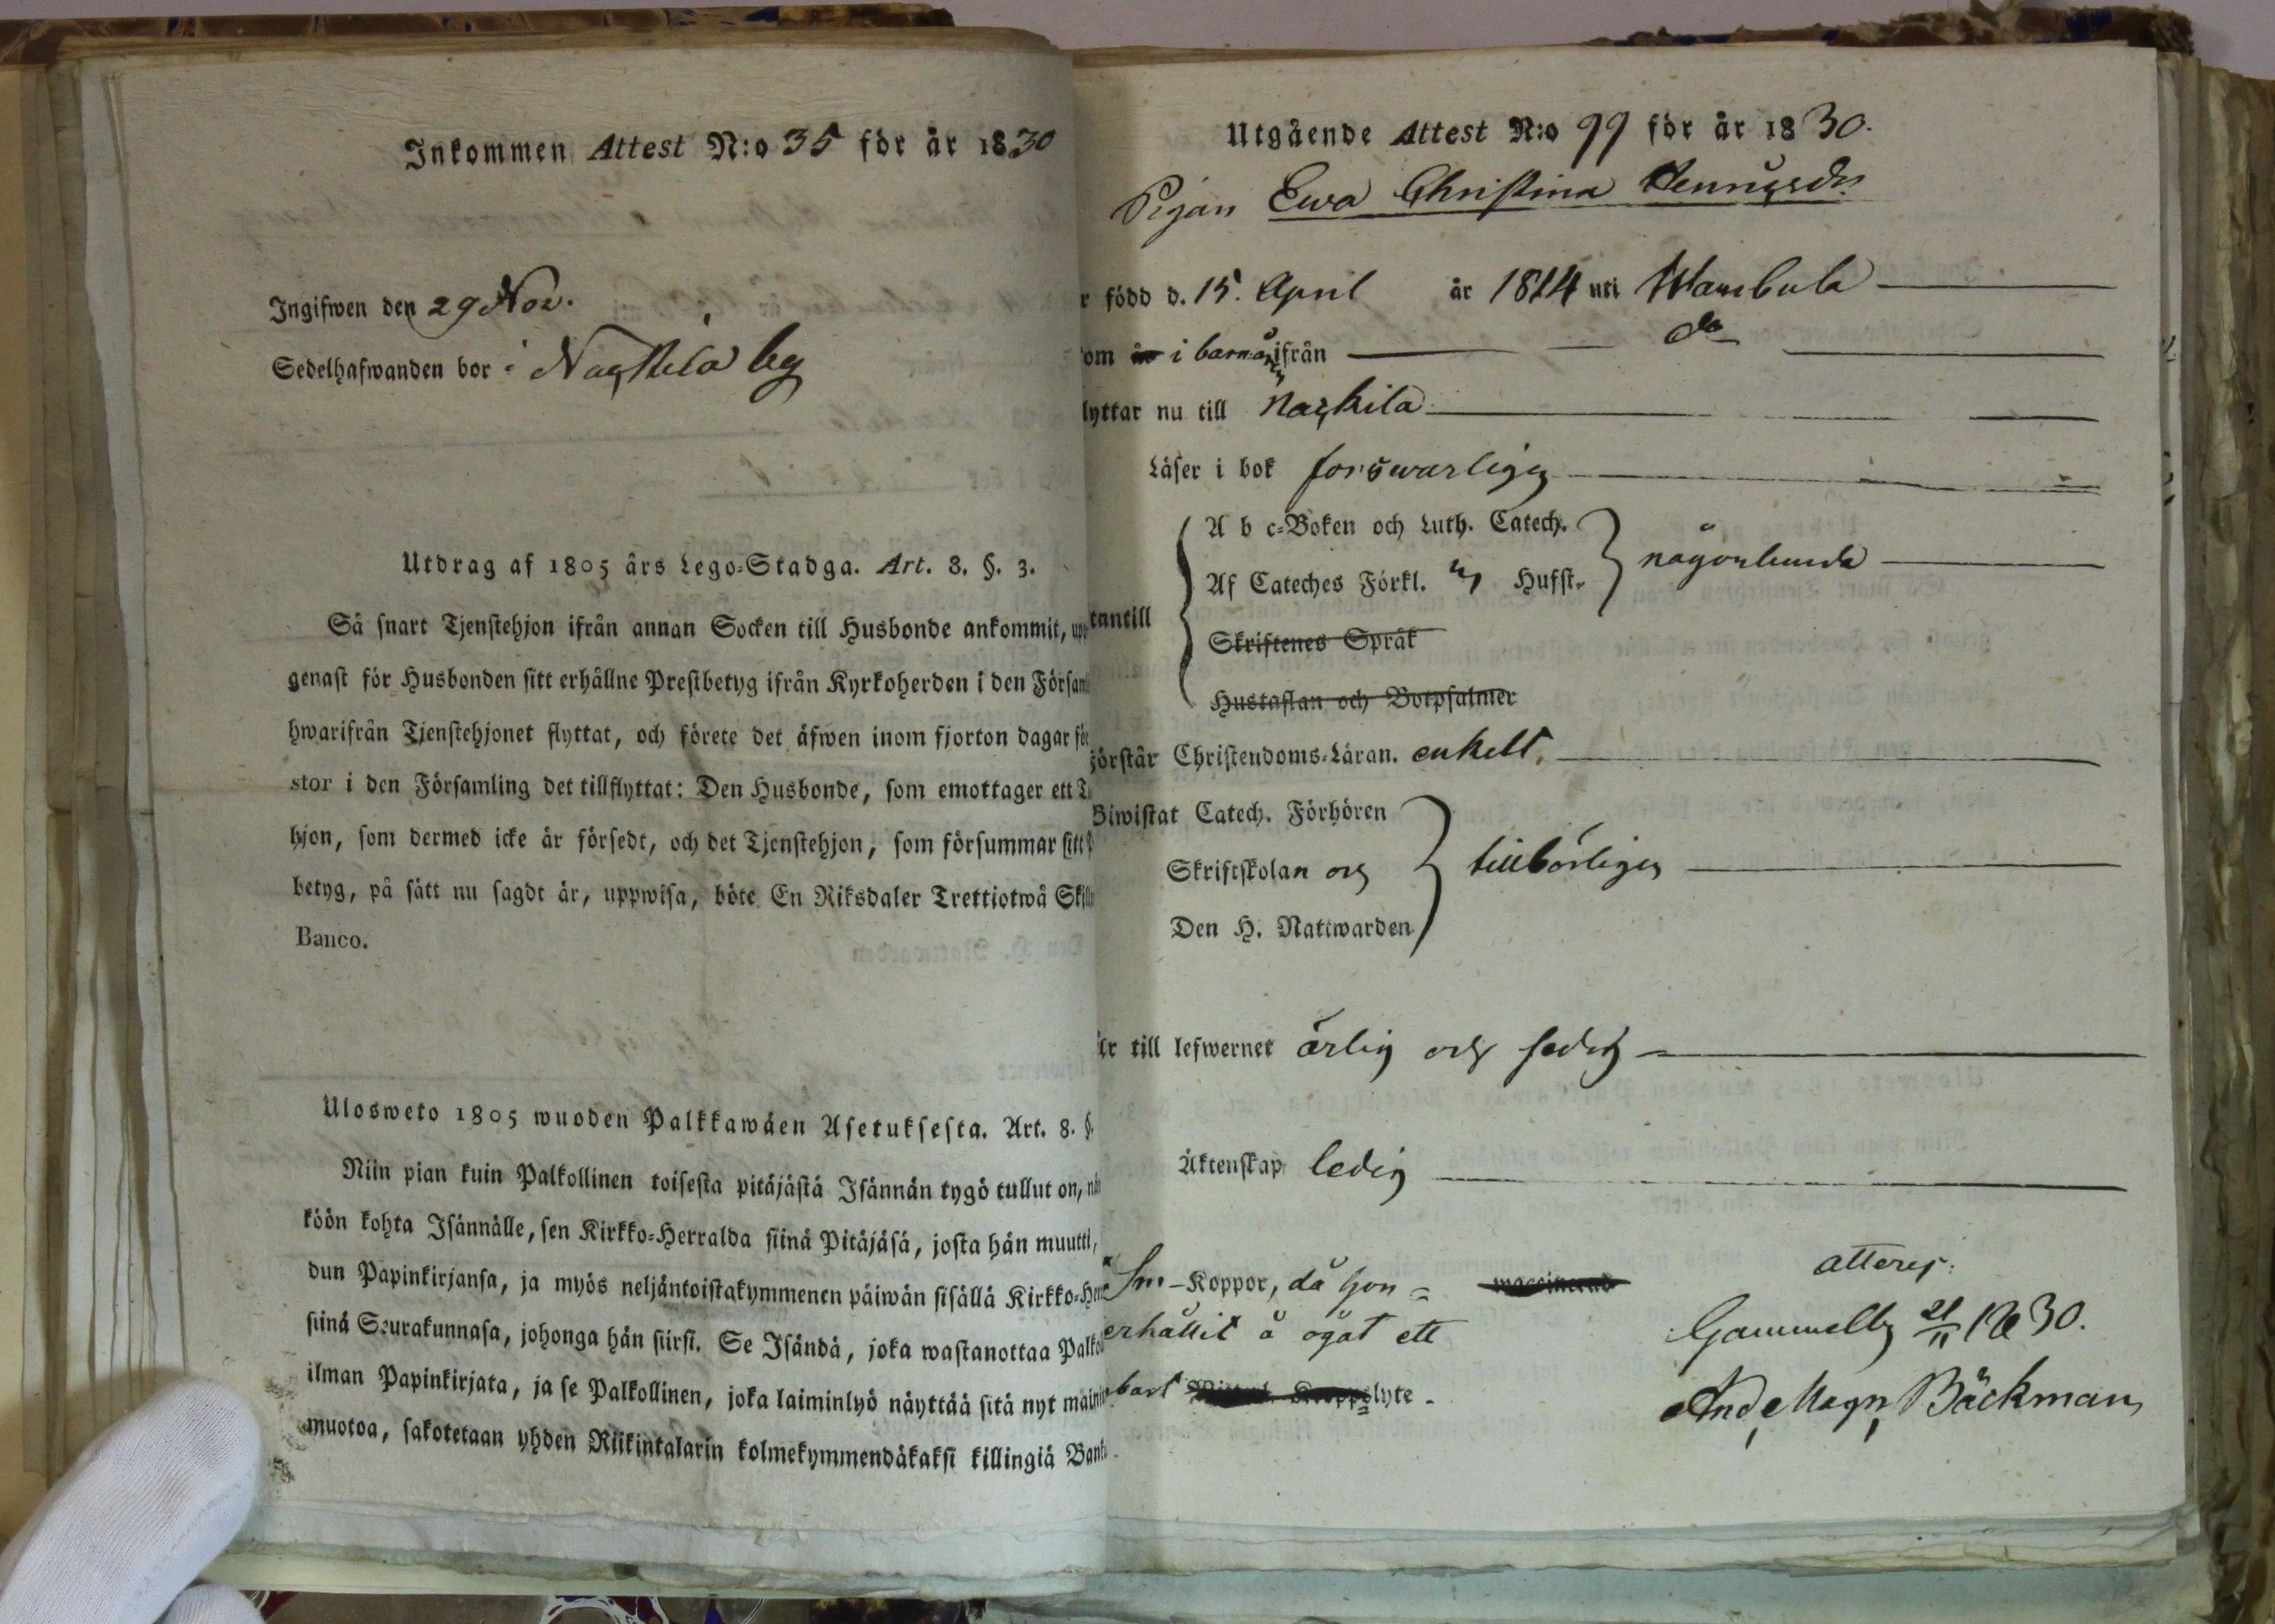 Inkommen Attest N:o 35 för år 1830
Ingifwen den 29 Nov.
Sedelhafwanden bor i Nagkila by
Utdrag af 1805 års Lego-Stadga. Art. 8. §. 3.
Så snart Tjenstehjon ifrån annan Socken till Husbonde ankommit, upp
genast för Husbonden sitt erhållne Prestbetyg ifrån Kyrkoherden i den Försam
hwarifrån Tjenstehjonet flyttat, och förete det äfwen inom fjorton dagar för
stor i den Församling det tillflyttat: Den Husbonde, som emottager ett
hjon, som dermed icke är försedt, och det Tjenstehjon, som försummar sitt
betyg, på sätt nu sagdt är, uppwisa, böte En Riksdaler Trettiotwå Skill
Banco.
Ulosweto 1805 wuoden Palkkawäen Asetuksesta. Art. 8. §.
Niin pian kuin Palkollinen toisesta pitäjästä Isännän tygö tullut on, näy
köön kohta Isännälle, sen Kirkko-Herralda siinä Pitäjäsä, josta hän muutti,
dun Papinkirjansa, ja myös neljäntoistakymmenen päiwän sisällä Kirkko-Her
siinä Seurakunnasa, johonga hän siirsi. Se Isändä, joka wastanottaa Palkol
ilman Papinkirjata, ja se Palkollinen, joka laiminlyö näyttää sitä nyt main
muotoa, sakotetaan yhden Riikintalarin kolmekymmendäkaksi killingiä Banko
Utgående Attest N:o 99 för år 1830.
Pigan Ewa Christina Henricsdr
r född d. 15. April år 1814 uti Wambula
om år i barnaår ifrån do
lyttar nu till Nagkila
Läser i bok forswarligen
A b c-Boken och Luth. Catech.
Af Cateches Förkl. Husst.
någorlunda
tantill
Skriftenes Språk
Hustaflan och Botpsalmer
Förstår Christendoms-Läran. enkelt.
Biwistat Catech. Förhören
Skriftskolan och
tillbörligen
Den H. Nattwarden
Är till lefwernet ärlig och sedig
Äktenskap ledig
Koppor, då hon waccinerad
erhållit å ögat ett
bart Kroppslyte.
attest:
Gammelby 21/11 1830.
And. Magn. Bäckman